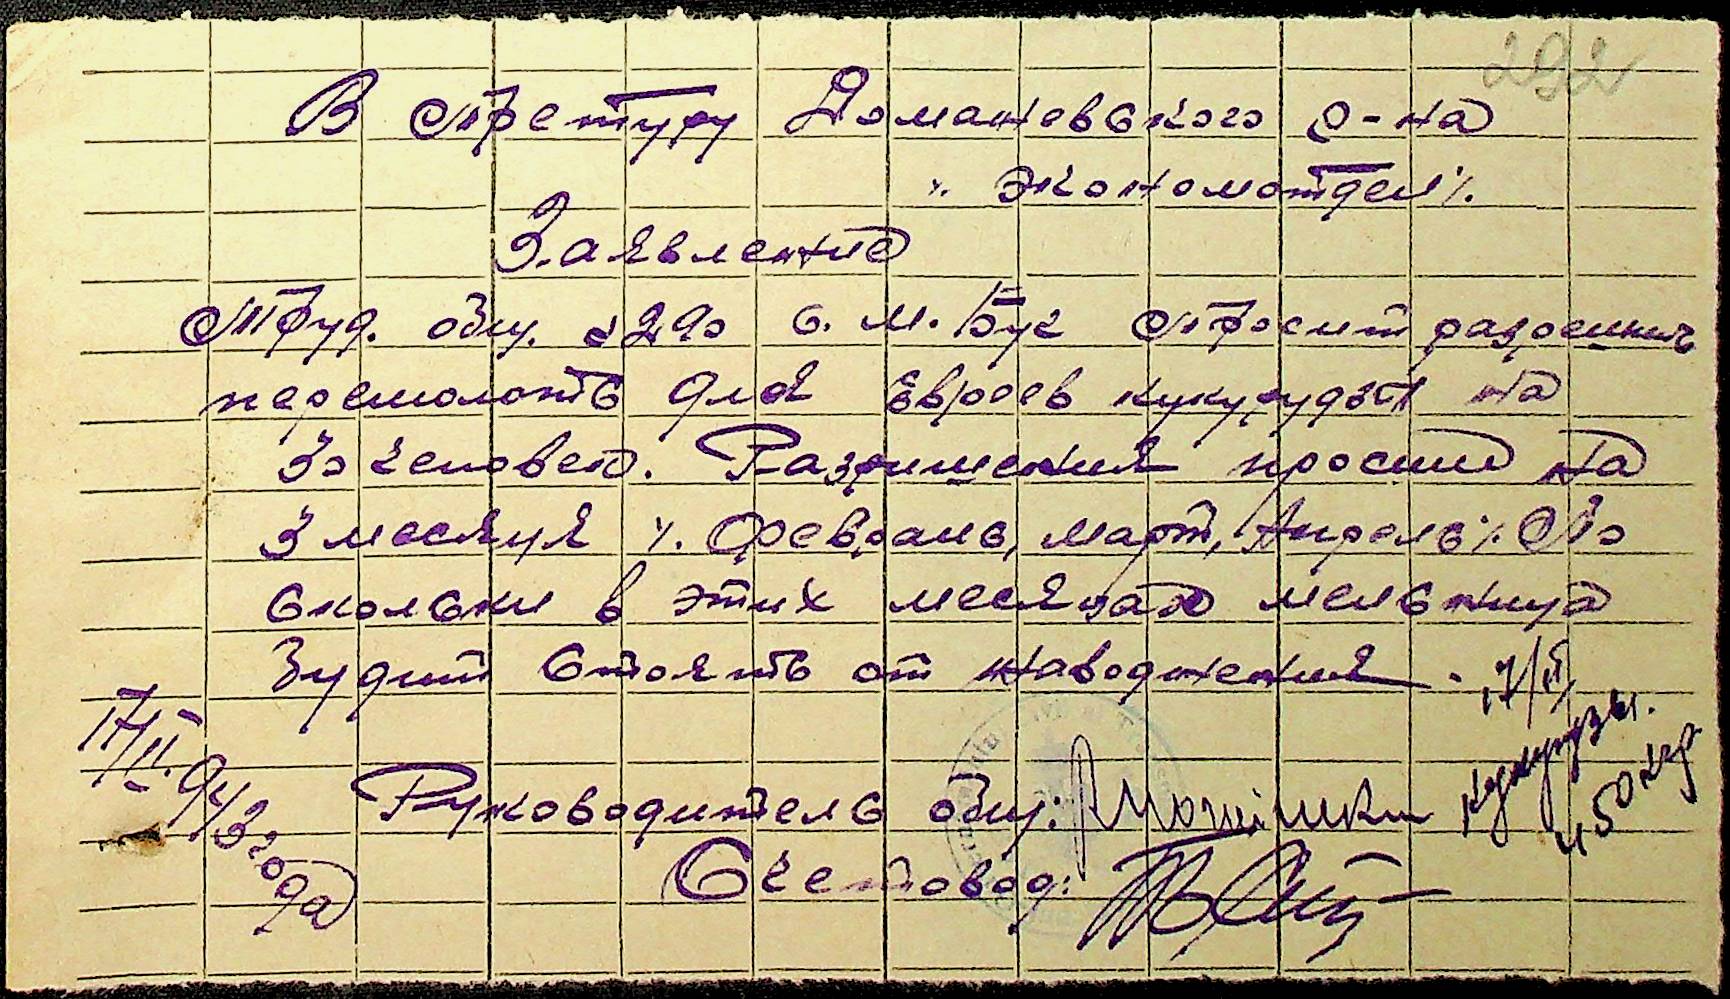 292
В Претуру Доманевского р-на
"Экономотдел".
Заявление
Труд. общ. №290 с. М. Буг Просит разрешить
перемолоть для Евреев кукурудзы на
30 человек. Разришения просим на
3 месяця /. Февраль, март, Апрель/. По
скольки в этих месяцах мельница
будит стоять от наводнения.
17/II
кукурузы.
450 кгр
17/II. 943 года
Руководитель общ:
Счетовод: